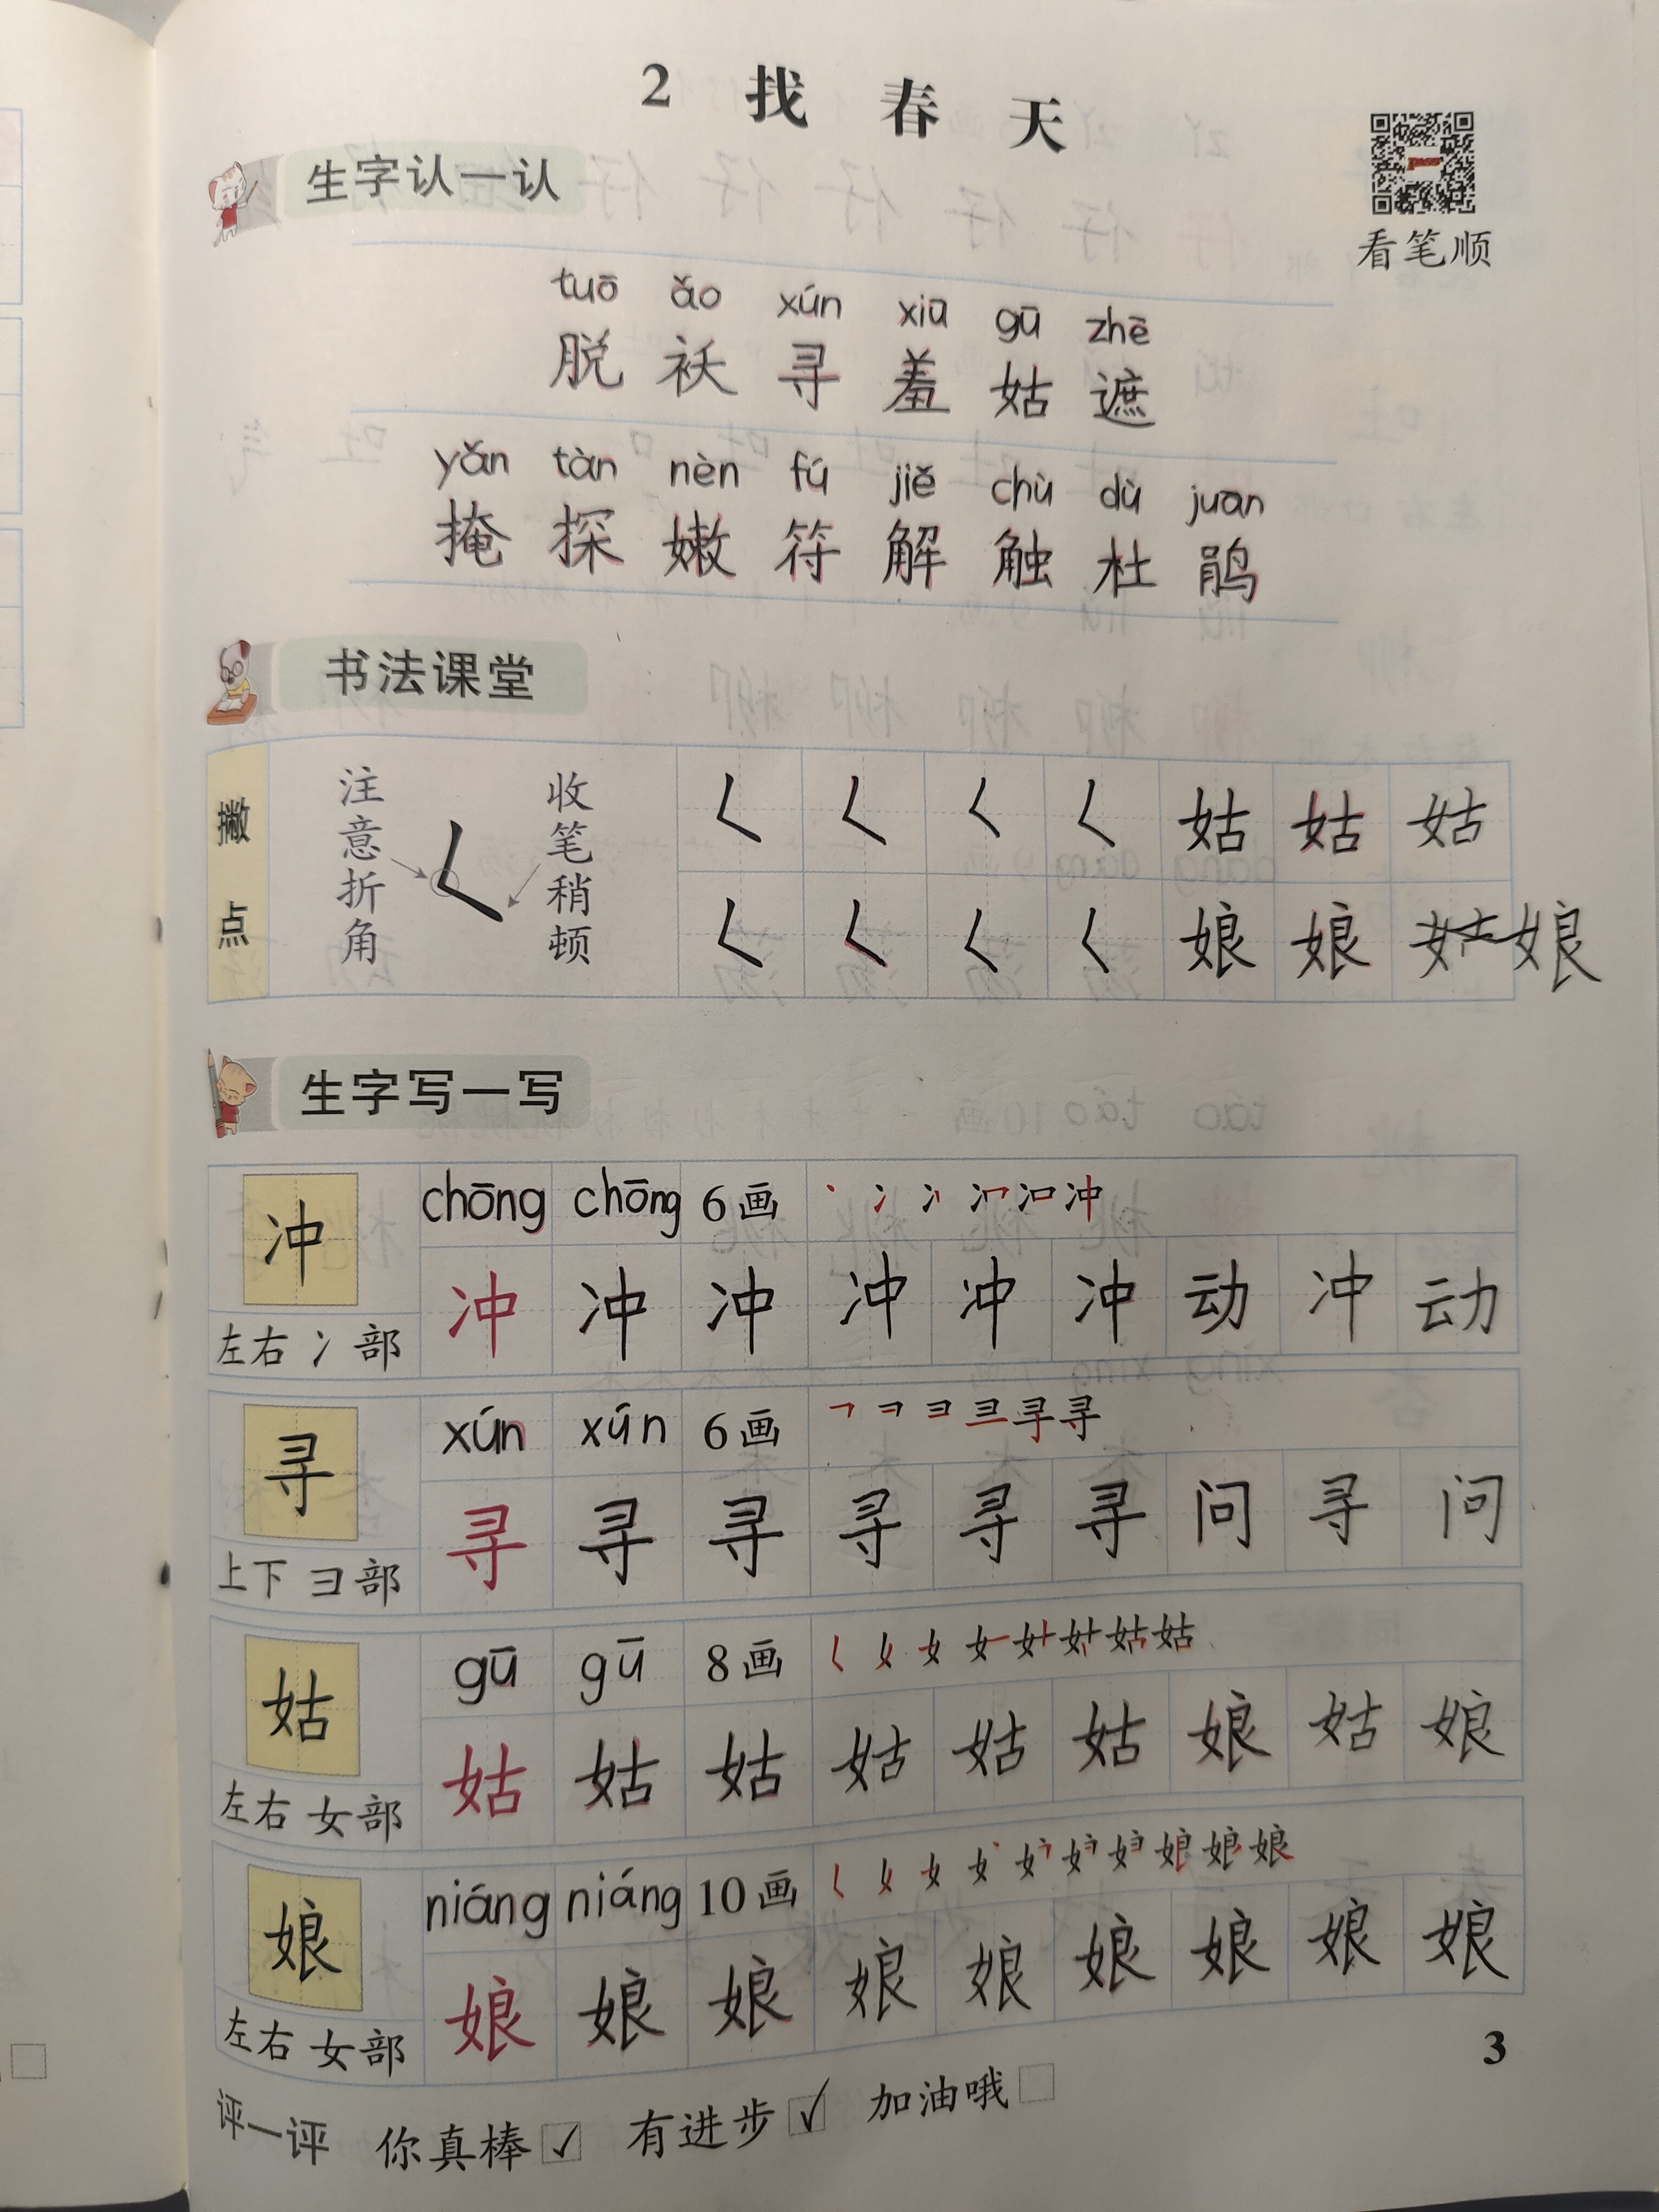 2 找 春 天
生字认一认
看笔顺
tuō ǎo xún xiū gū zhē
脱 袄 寻 羞 姑 遮
yǎn tàn nèn fú jiě chù dù juan
掩 探 嫩 符 解 触 杜 鹃
书法课堂
撇点
注意折角
收笔稍顿
𡿨 𡿨 𡿨 𡿨 姑 姑 姑
𡿨 𡿨 𡿨 𡿨 娘 娘 姑 娘
生字写一写
冲 chōng chōng 6画 冲
左右 冫部
冲 冲 冲 冲 冲 冲 动 冲 动
寻 xún xún 6画 寻寻
上下 彐部
寻 寻 寻 寻 寻 寻 问 寻 问
姑 gū gū 8画 姑
左右 女部
姑 姑 姑 姑 姑 姑 娘 姑 娘
娘 niáng niáng 10画 娘
左右 女部
娘 娘 娘 娘 娘 娘 娘 娘 娘
评一评 你真棒 ✓ 有进步 ✓ 加油哦
3